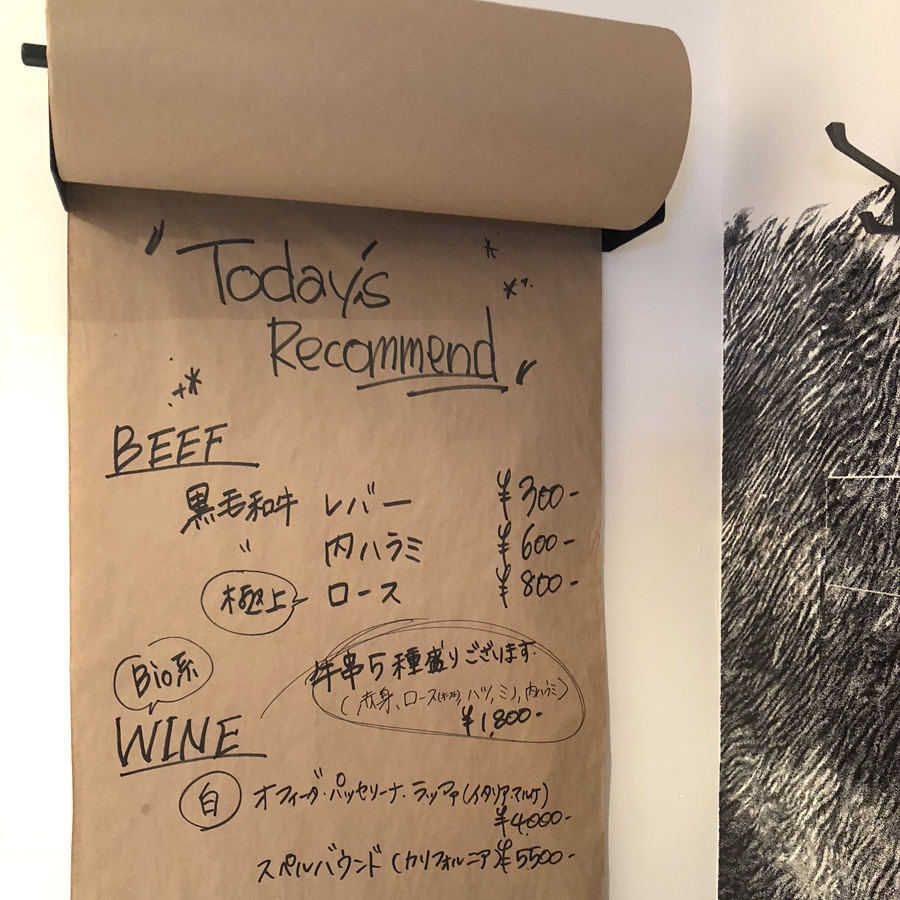 "Today's
Recommend"
BEEF
黒毛和牛 レバー ¥300-
〃 内ハラミ ¥600-
極上 ロース ¥800-
牛串5種盛りございます.
(赤身、ロース ハツ,ミノ,内ハラミ)
¥1,800-
Bio系
WINE
白 オフィーダ・パッセリーナ・ラッファ(イタリア・マルケ)
¥4,000-
スペルバウンド(カリフォルニア) ¥5,500-